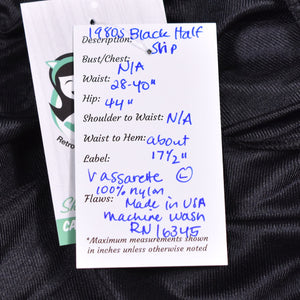 1980s Black Half
Description: Slip
Bust/Chest:
N/A
Waist:
28-40"
Hip:
44"
Shoulder to Waist: N/A
Waist to Hem: about
Label: 17½"
Vassarette L
100% nylon
Flaws: Made in USA
machine wash
RN 16345
*Maximum measurements shown
in inches unless otherwise noted
Retro